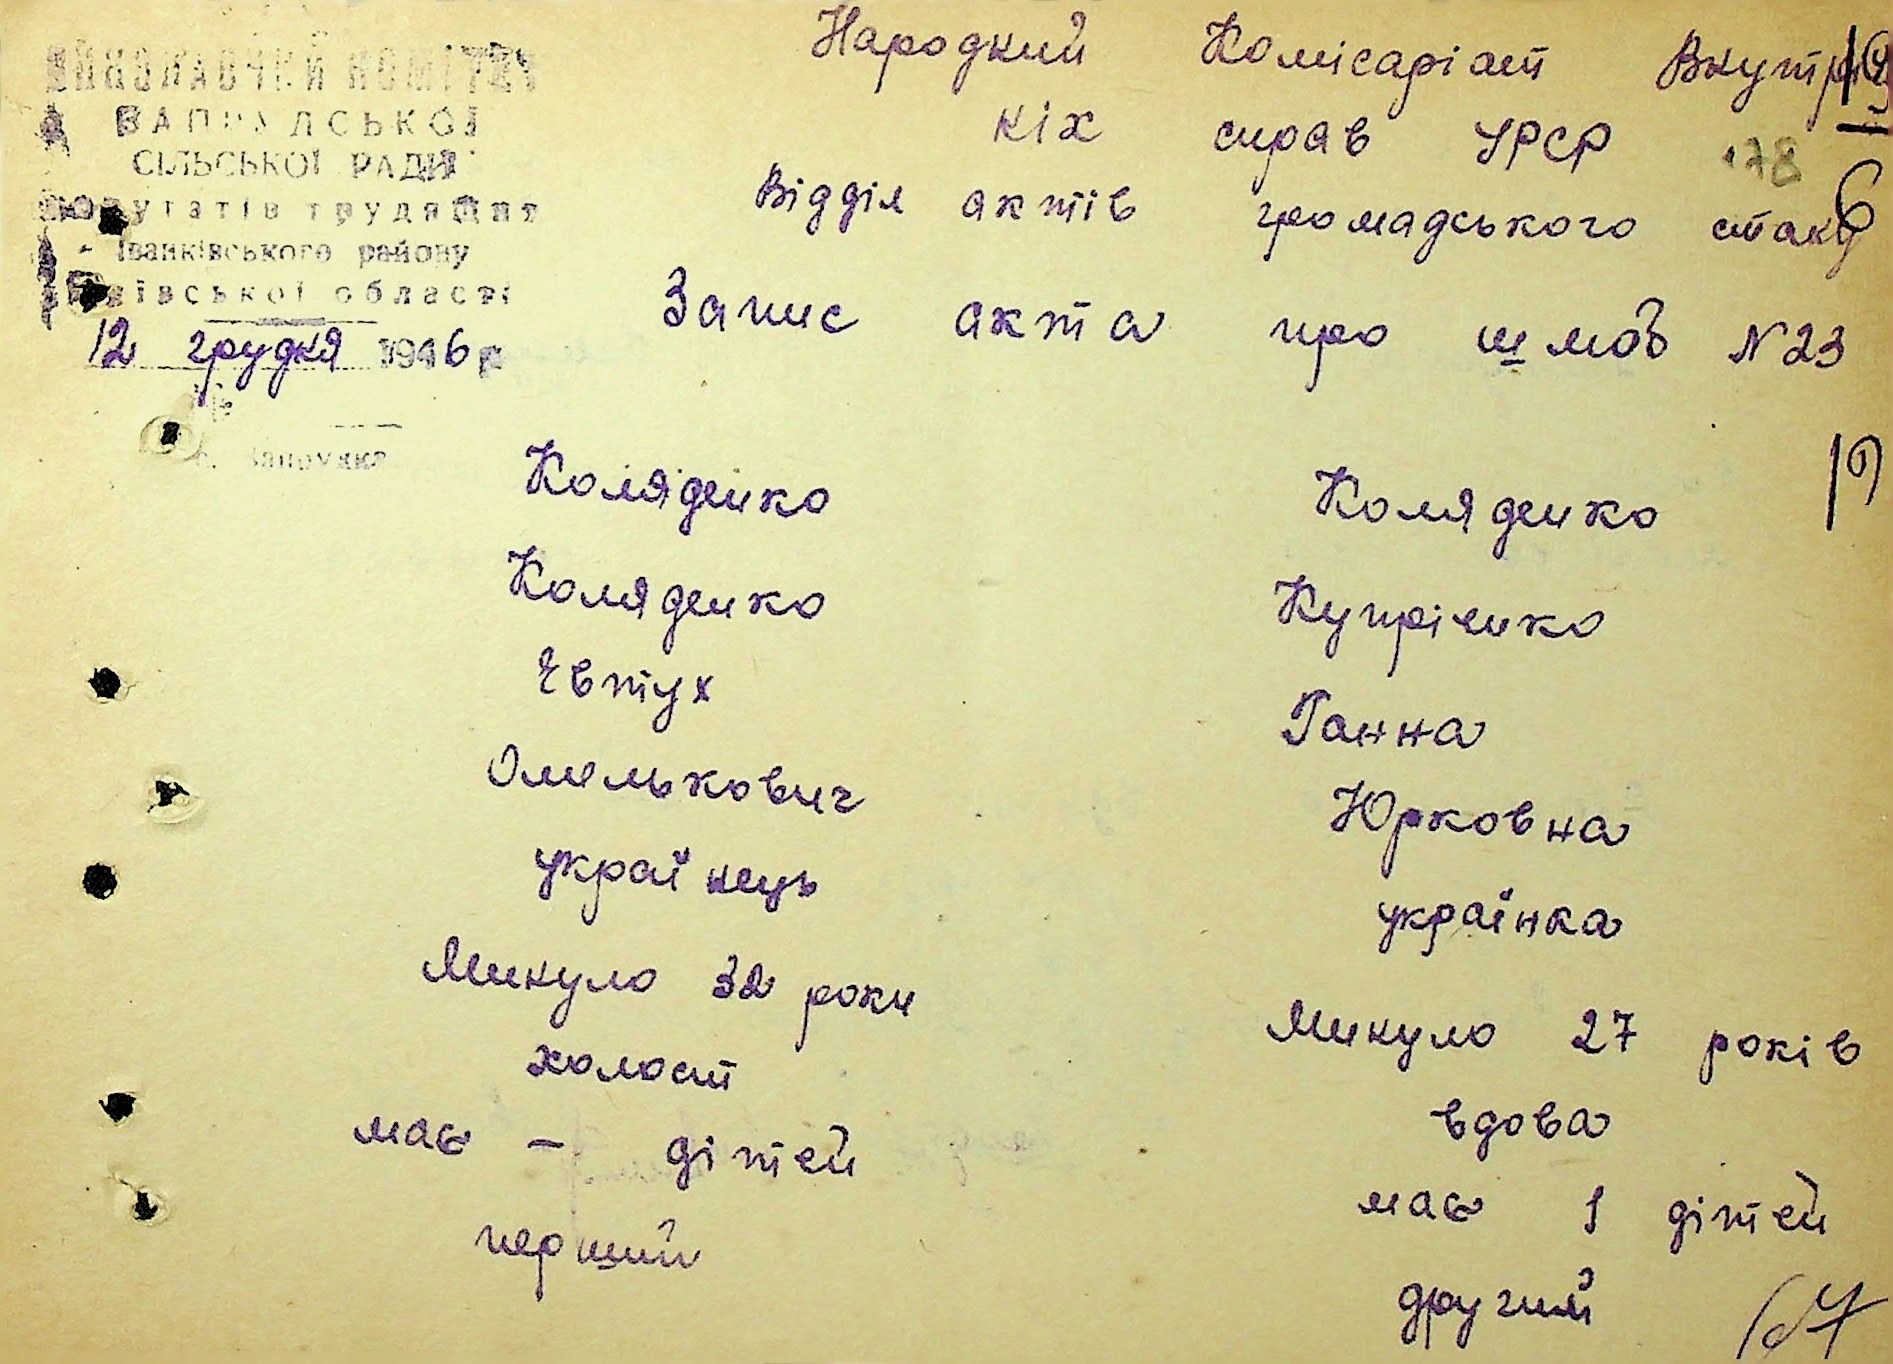 ВИКОНАВЧИЙ КОМІТЕТ
ЗАПРУДСЬКОЇ
СІЛЬСЬКОЇ РАДИ
депутатів трудящих
Іванківського району
Київської області
12 грудня 1946 р
с. Запрудка
Народний Комісаріат Внутріш
ніх справ УРСР
178
Відділ актів громадського стану
Запис акта про шлюб N 23
Коляденко Коляденко
Коляденко Купрієнко
Євтух Ганна
Омелькович Юрковна
українець українка
Минуло 32 роки Минуло 27 років
холост вдова
має – дітей має 1 дітей
перший другий
67